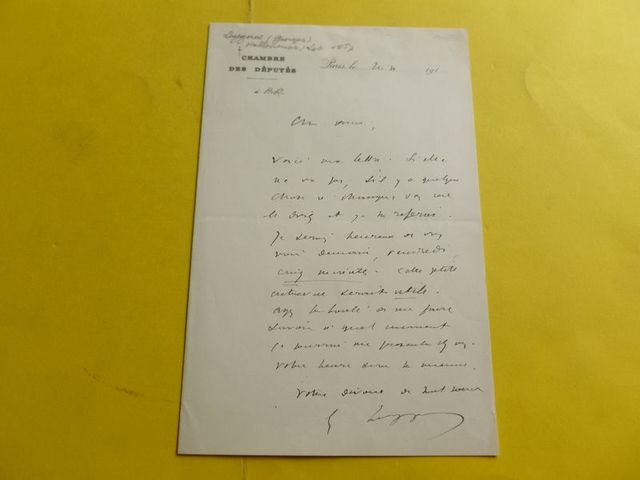 Leygues (Georges)
Villeneuve, Lot 1857
CHAMBRE
DES DÉPUTÉS
Paris le 191
Cher ami,
Voici ma lettre. Si elle
ne va pas, s'il y a quelque
chose à changer,
le direz et je la referai.
Je serais heureux de vous
voir demain, vendredi,
cinq minutes. Cette petite
entrevue serait utile.
Ayez la bonté de me faire
savoir à quel moment
je pourrai me présenter chez vous.
Votre heure sera la mienne.
Votre dévoué de tout cœur
G Leygues